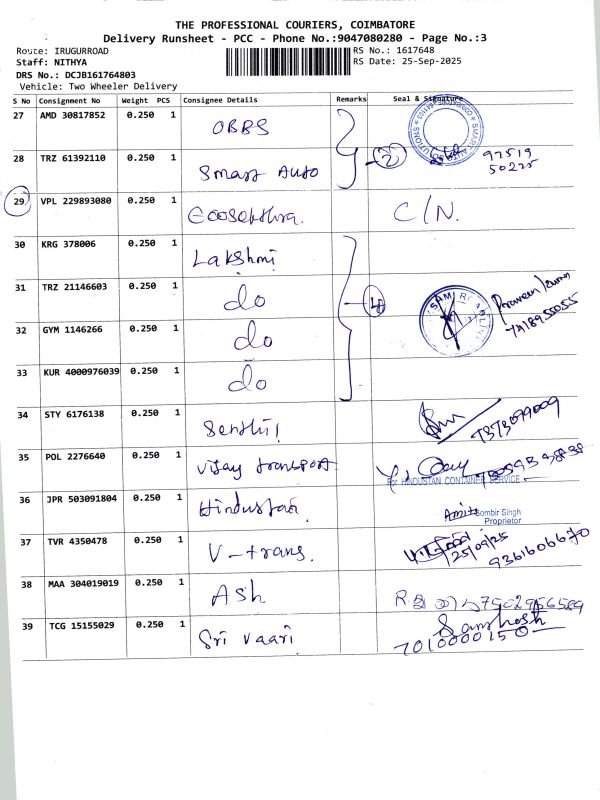 THE PROFESSIONAL COURIERS, COIMBATORE
Delivery Runsheet - PCC - Phone No.:9047080280 - Page No.:3
Route: IRUGURROAD
RS No.: 1617648
Staff: NITHYA
RS Date: 25-Sep-2025
DRS No.: DCJB161764803
Vehicle: Two Wheeler Delivery
S No Consignment No Weight PCS Consignee Details Remarks Seal & Signature
27 AMD 30817852 0.250 1 OBBS
28 TRZ 61392110 0.250 1 Smart Auto 2 97519
50225
29 VPL 229893080 0.250 1 C/N.
30 KRG 378006 0.250 1 Lakshmi
31 TRZ 21146603 0.250 1 do 4
32 GYM 1146266 0.250 1 do
33 KUR 4000976039 0.250 1 do
34 STY 6176138 0.250 1 Senthil
35 POL 2276640 0.250 1 Vijay transport
For HINDUSTAN CONTAINER SERVICE
36 JPR 503091804 0.250 1 Hindustan Amit Sombir Singh
Proprietor
37 TVR 4350478 0.250 1 V-trans. 25/09/25 9361606670
38 MAA 304019019 0.250 1 Ash
39 TCG 15155029 0.250 1 Sri Vaari Santhosh
7010000150